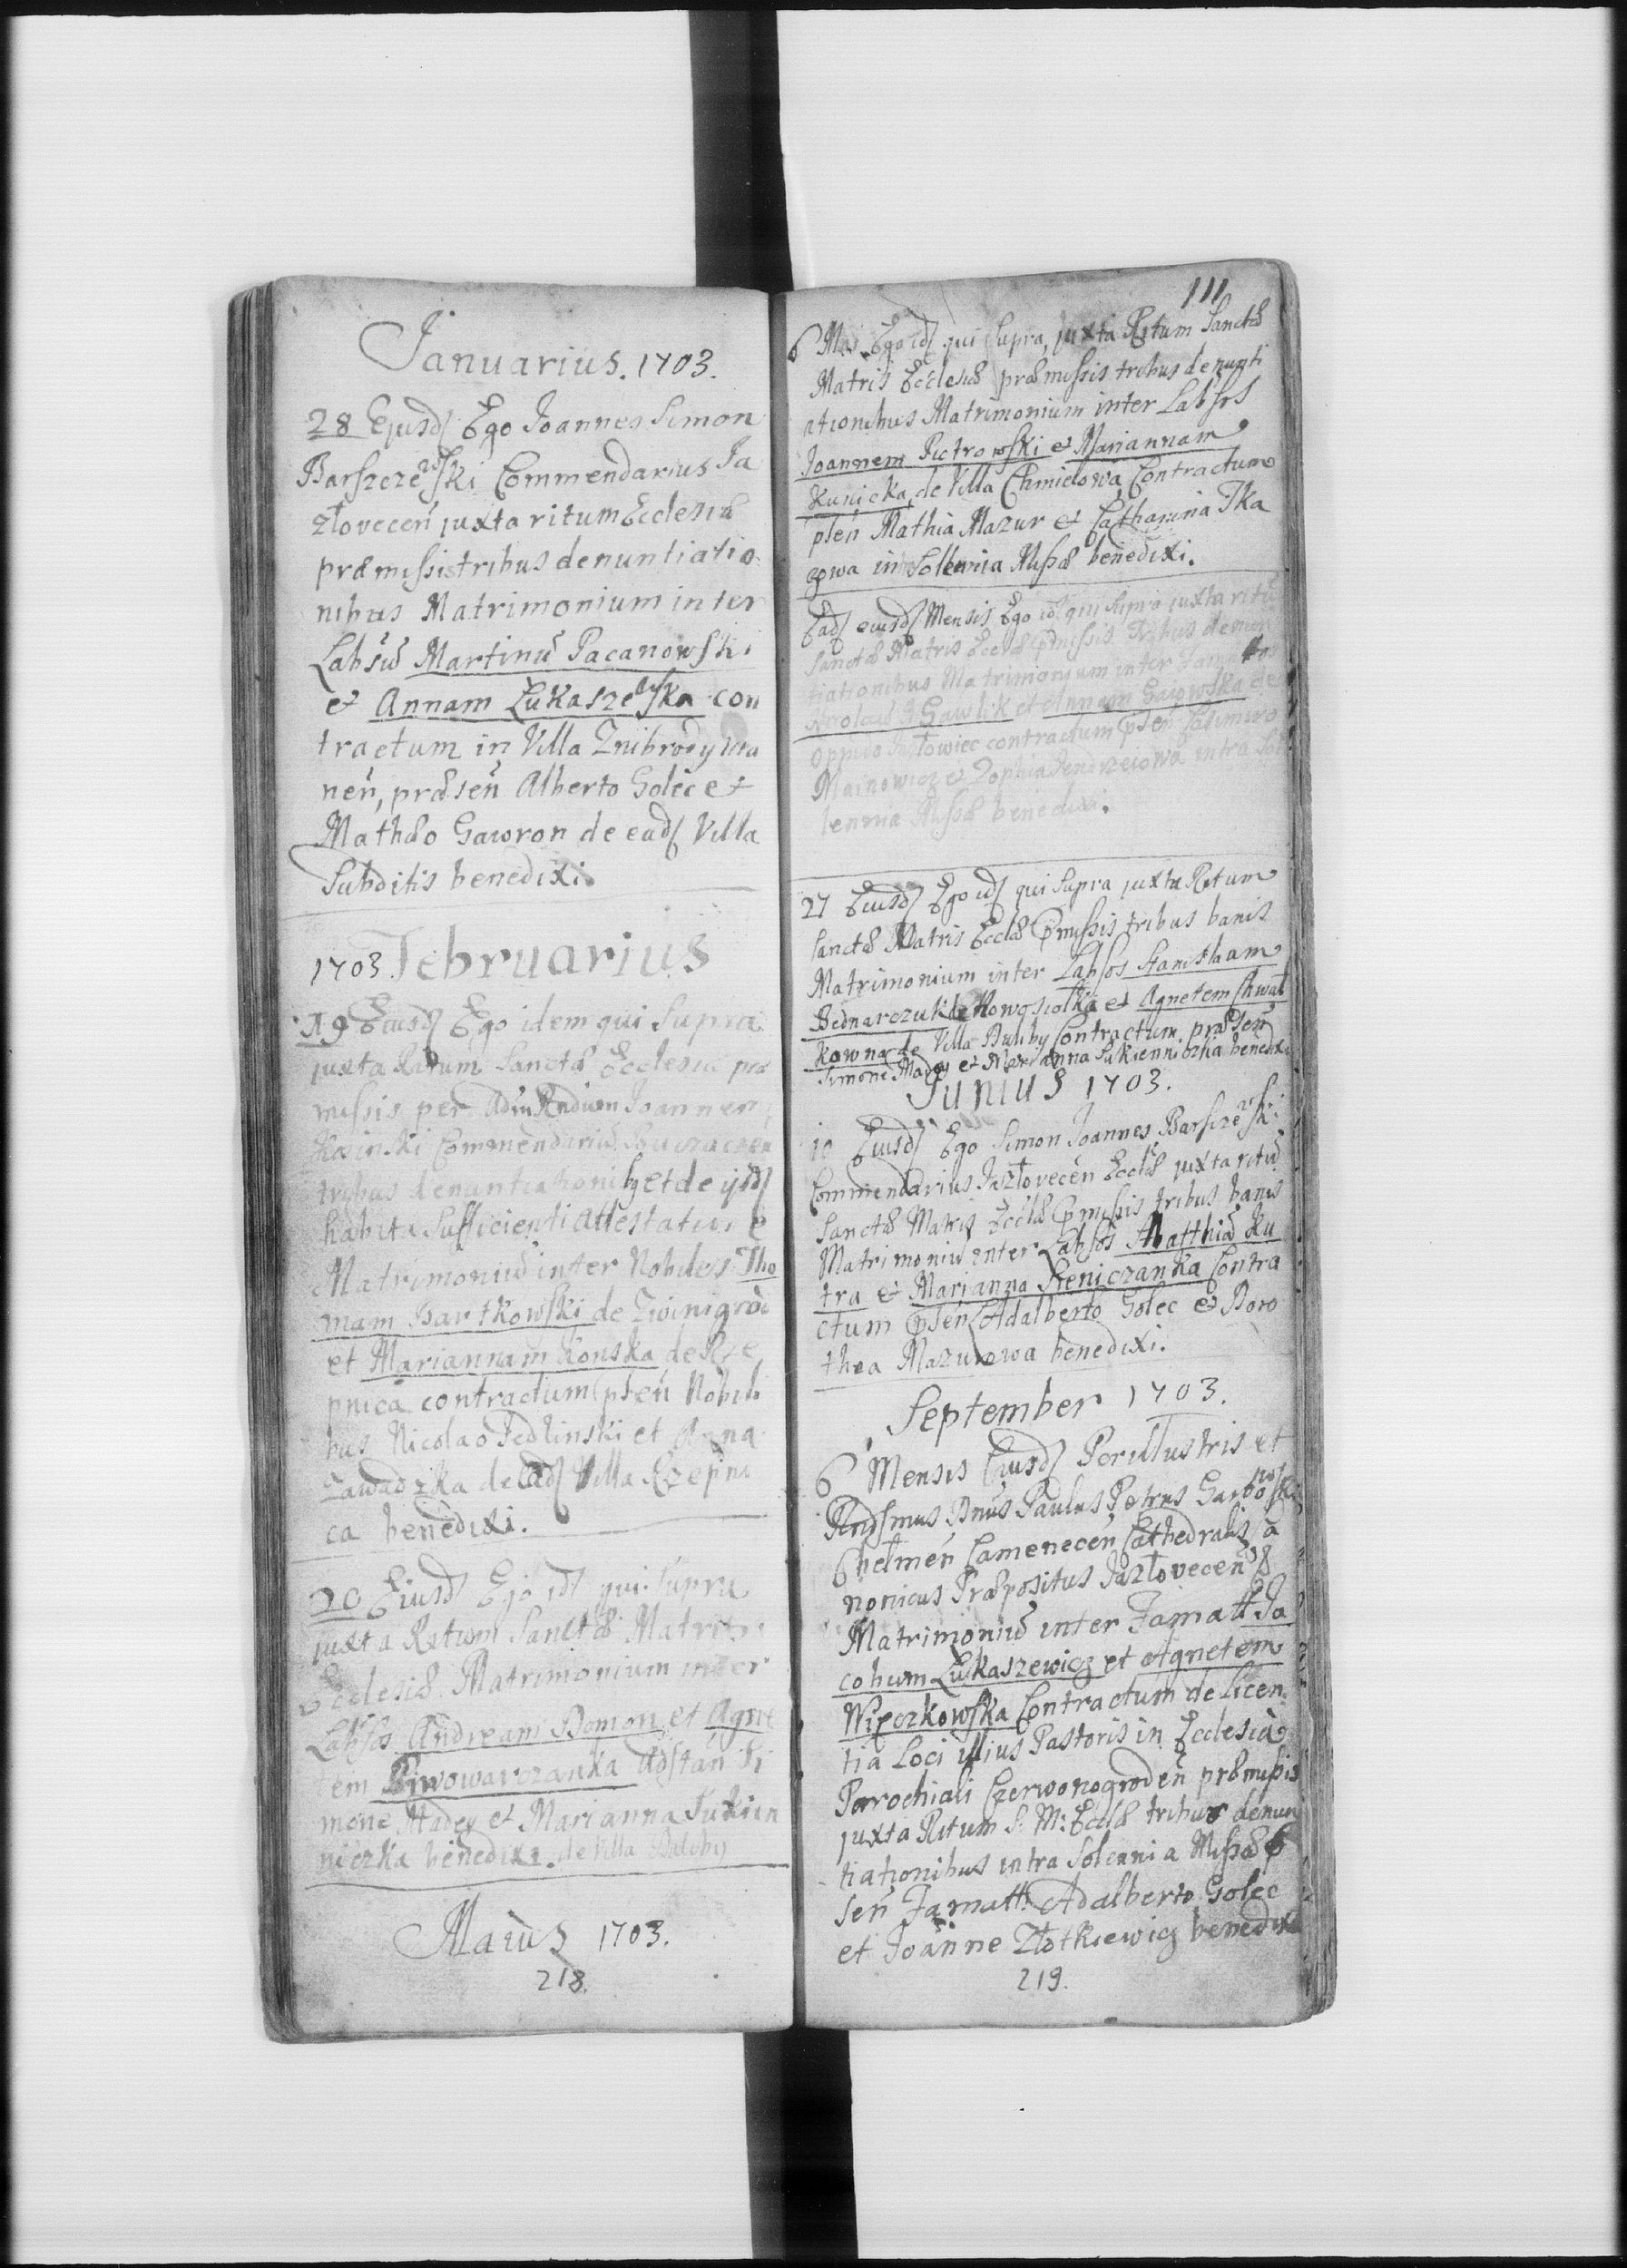 Januarius. 1703.
28 Ejusd Ego Joannes Simon
Barszczewski Commendarius Ja
złovecen̄ juxta ritum Ecclesiæ
præmissis tribus denuntiatio
nibus Matrimonium inter
Labsū Martinū Pacanowski
et Annam Łukaszewska con
tractum in Villa Znibrody
nen̄, præsen̄ Alberto Golec et
Mathæo Gawron de ead Villa
Subditis benedixi.
1703. Februarius
19 Eiusd Ego idem qui Supra
juxta Ritum Sanctæ Ecclesiæ præ
missis per Admm Rndum Joannem
Kosinski Commendariū Buczaczen
tribus denuntiationibq et de ijsd
habita Sufficienti Attestatione
Matrimoniū inter Nobiles Tho
mam Bartkowski de Zwinigrod
et Mariannam Konska de Rze
pnica contractum psen̄ Nobili
bus Nicolao Fedlinski et Anna
Zawadzka de ead Villa Rzepni
ca benedixi.
20 Eiusd Ego id qui Supra
juxta Ritum Sanctæ Matris
Ecclesiæ Matrimonium inter
Labsos Andream Domon et Agne
tem Piwowarczanka Adstan Si
mone Madey et Marianna Sukien
niczka benedixi. de Villa Baluby
Maius 1703.
218.
111
6 Mai. Ego id qui Supra, juxta Ritum Sanctæ
Matris Ecclesiæ præmissis tribus denunti
ationibus Matrimonium inter Labsos
Joannem Pietrowski et Mariannam
Kunicka, de Villa Chmielowa Contractum
psen̄ Mathia Mazur et Catharina Tka
czowa in Solennia Missæ benedixi.
Ead eiusd Mensis Ego id qui Supra juxta ritū
Sanctæ Matris Eccłæ pmissis Tribus denun
tiationibus Matrimonium inter Famatos
Nicolaū Gawlik et Annam Gaiowska de
Oppido Jazłowiec contractum psen̄ Casimiro
Mainowicz et Zophia Jendrzeiowa intra Sol
lennia Missæ benedixi.
27 Eiusd Ego id qui Supra juxta Ritum
Sanctæ Matris Eccłæ pmissis tribus banis
Matrimonium inter Labsos Stanislaum
Bednarczuk de Nowosiolka et Agnetem Chwał
kowna de Villa Baluby Contractum, præsen̄
Simone Madey et Marianna Sukienniczka benedixi
Junius 1703.
10 Eiusd Ego Simon Joannes Barszczewski
Commendarius Jazłovecen̄ Eccłæ juxta ritū
Sanctæ Matris Eccłæ pmissis tribus banis
Matrimoniū inter Labsos Matthiā Ku
tra et Marianna Kreniczanka Contra
ctum psen̄ Adalberto Golec et Doro
thea Mazurowa benedixi.
September 1703.
6 Mensis Eiusd Perillustris et
Rndsmus Dnūs Paulus Petrus Garbowski
Chełmen̄ Camenecen̄ Cathedralis Ca
nonicus Præpositus Jazłovecen̄
Matrimoniū inter Famatt Ja
cobum Łukaszewicz et Agnetem
Wieczkowska Contractum de licen
tia Loci illius Pastoris in Ecclesia
Parochiali Czerwonogroden̄ præmissis
juxta Ritum S. M. Eccłæ tribus denun
tiationibus intra Solennia Missæ p
sen̄ Famatt. Adalberto Golec
et Joanne Złotkiewicz benedixi
219.